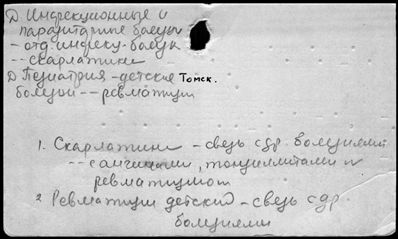 Д Инфекционные и
паразитарные болезн
- отд. инфекц. болезн
-- скарлатина
Д Педиатрия - детские Томск.
болезни -- ревматизм
1. Скарлатина - связь с др. болезнями
-- с ангинами, тонзиллитами и
ревматизмом
2 Ревматизм детский - связь с др.
болезнями